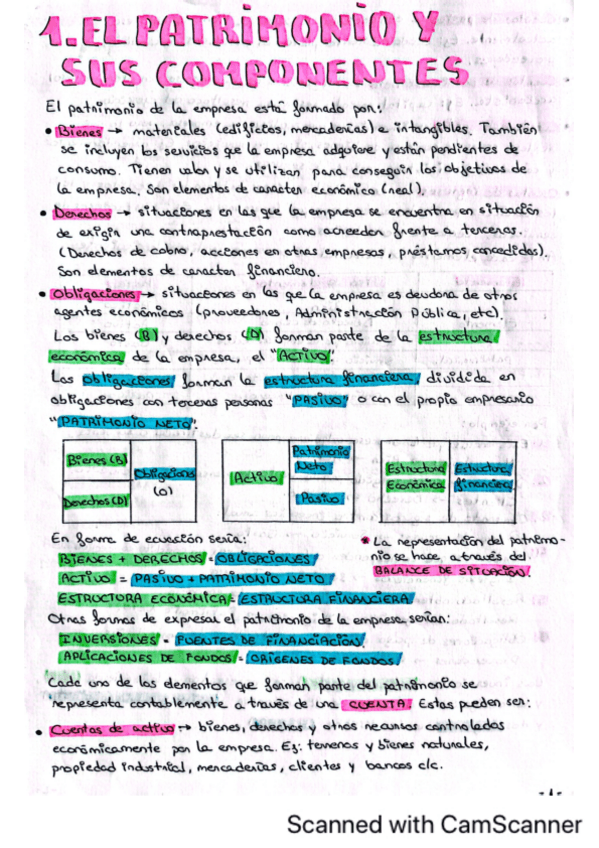 1. EL PATRIMONIO Y
SUS COMPONENTES
El patrimonio de la empresa está formado por:
• Bienes → materiales (edificios, mercaderías) e intangibles. También
se incluyen los servicios que la empresa adquiere y están pendientes de
consumo. Tienen valor y se utilizan para conseguir los objetivos de
la empresa. Son elementos de caracter económico (real).
• Derechos → situaciones en las que la empresa se encuentra en situación
de exigir una contraprestación como acreedora frente a terceros.
(Derechos de cobro, acciones en otras empresas, préstamos concedidos).
Son elementos de caracter financiero.
• Obligaciones → situaciones en las que la empresa es deudora de otros
agentes económicos (proveedores, Administración Pública, etc).
Los bienes (B) y derechos (D) forman parte de la estructura
económica de la empresa, el "ACTIVO".
Las obligaciones forman la estructura financiera, dividida en
obligaciones con terceras personas "PASIVO" o con el propio empresario
"PATRIMONIO NETO".
Bienes (B)
Derechos (D)
Obligaciones
(O)
Activo
Patrimonio
Neto
Pasivo
Estructura
Económica
Estructura
financiera
En forma de ecuación sería:
BIENES + DERECHOS = OBLIGACIONES
ACTIVO = PASIVO + PATRIMONIO NETO
ESTRUCTURA ECONÓMICA = ESTRUCTURA FINANCIERA
* La representación del patrimo-
nio se hace a través del
BALANCE DE SITUACIÓN.
Otras formas de expresar el patrimonio de la empresa serían:
INVERSIONES = FUENTES DE FINANCIACIÓN
APLICACIONES DE FONDOS = ORÍGENES DE FONDOS
Cada uno de los elementos que forman parte del patrimonio se
representa contablemente a través de una CUENTA. Estas pueden ser:
• Cuentas de activo → bienes, derechos y otros recursos controlados
económicamente por la empresa. Ej: terrenos y bienes naturales,
propiedad industrial, mercaderías, clientes y bancos c/c.
-1-
Scanned with CamScanner